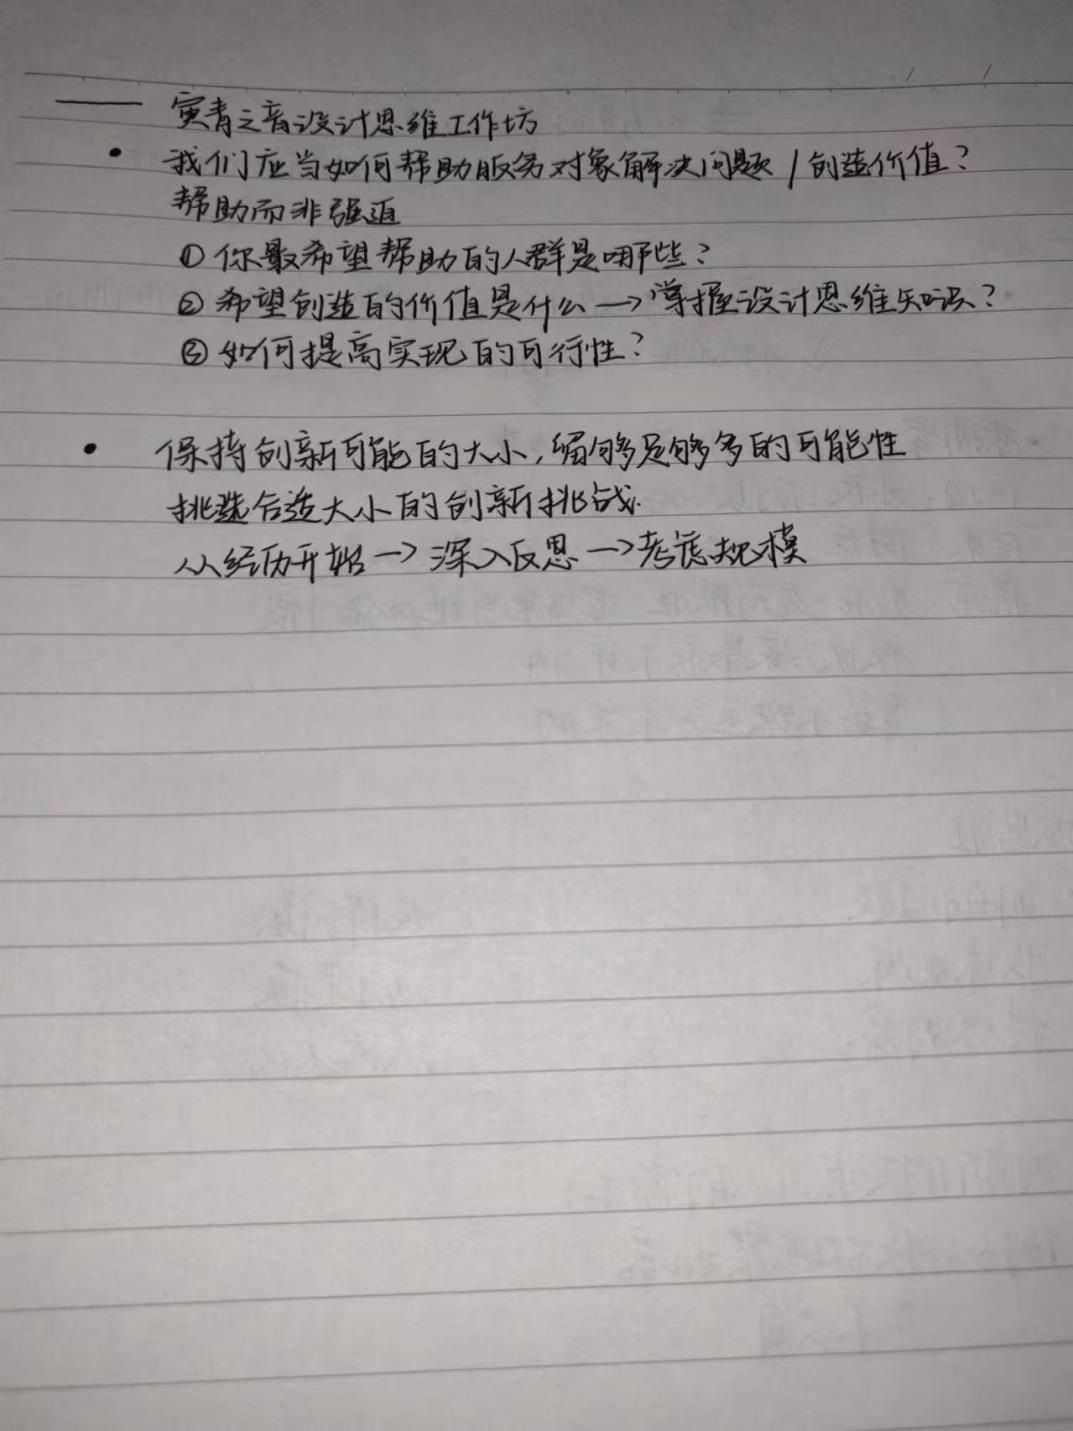 —— 寅青之音设计思维工作坊
• 我们应当如何帮助服务对象解决问题 / 创造价值？
帮助而非强迫
① 你最希望帮助的人群是哪些？
② 希望创造的价值是什么 → 掌握设计思维知识？
③ 如何提高实现的可行性？
• 保持创新可能的大小，能够足够多的可能性
挑选合适大小的创新挑战.
从经历开始 → 深入反思 → 考虑规模